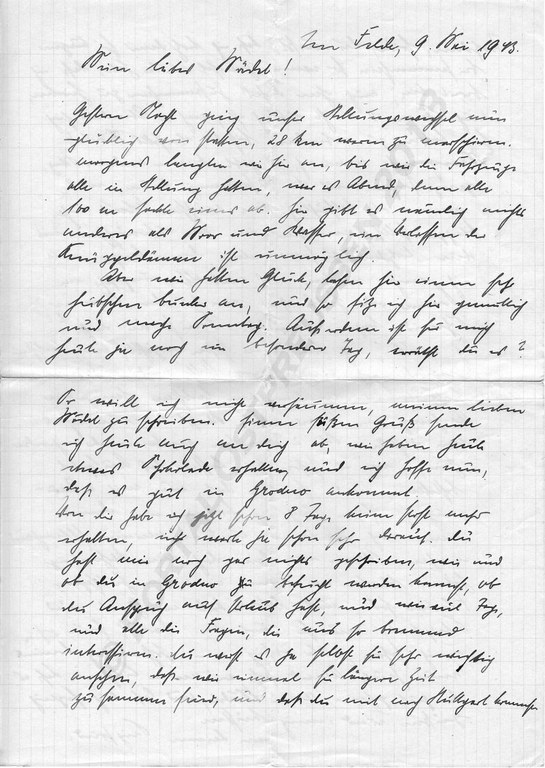 Im Felde, 9. Mai 1943.
Mein liebes Mädel!
Gestern Nacht ging unser Stellungswechsel nun
glücklich von statten, 28 km waren zu marschieren.
morgens langten wir hier an, bis wir die Fahrzeuge
alle in Stellung hatten, war es Abend, denn alle
100 m sackte eines ab. Hier gibt es nämlich nichts
anderes als Moor und Wasser, ein Verlassen der
Knüppeldämme ist unmöglich.
Aber wir hatten Glück, trafen hier einen sehr
hübschen Bunker an, und so sitze ich hier gemütlich
und mache Sonntag. Außerdem ist für mich
heute ja noch ein besonderer Tag, weißt du es?
Da will ich nicht versäumen, meinem lieben
Mädel zu schreiben. Einen süßen Gruß sende
ich heute auch an dich ab, wir haben heute
etwas Schokolade erhalten, und ich hoffe nun,
daß es gut in Grodno ankommt.
Von dir habe ich jetzt schon 8 Tage keine Post mehr
erhalten, ich warte ja schon sehr darauf. du
hast mir noch gar nichts geschrieben, wie und
ob du in Grodno besucht werden kannst, ob
du Anspruch auf Urlaub hast, und wie viel Tage,
und alle die Fragen, die uns so brennend
interessieren. du wirst es ja selbst für sehr wichtig
ansehen, daß wir einmal für längere Zeit
zusammen sind, und daß du mit nach Stuttgart kommst